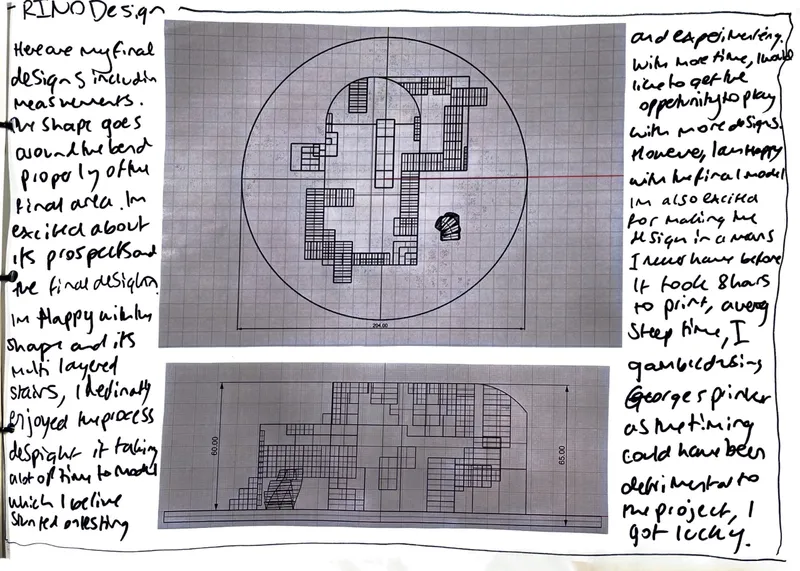 RINO Design
Here are my final
designs includin
measurements.
The shape goes
around the bend
properly of the
final area. Im
excited about
its prospects and
the final design.
Im Happy with the
shape and its
multi layered
stairs, I
enjoyed the process
despight it taking
a lot of time to model
which I belive
and experimenting.
with more time, I would
like to get the
oppertunity to play
with more designs.
However, I am Happy
with the final model
Im also excited
for making the
design in a means
I never have before
It took 8 hours
to print, averg
Steep time, I
gambled using
Georges printer
as the timing
could have been
detrimental to
the project, I
got lucky.
204.00
60.00
65.00